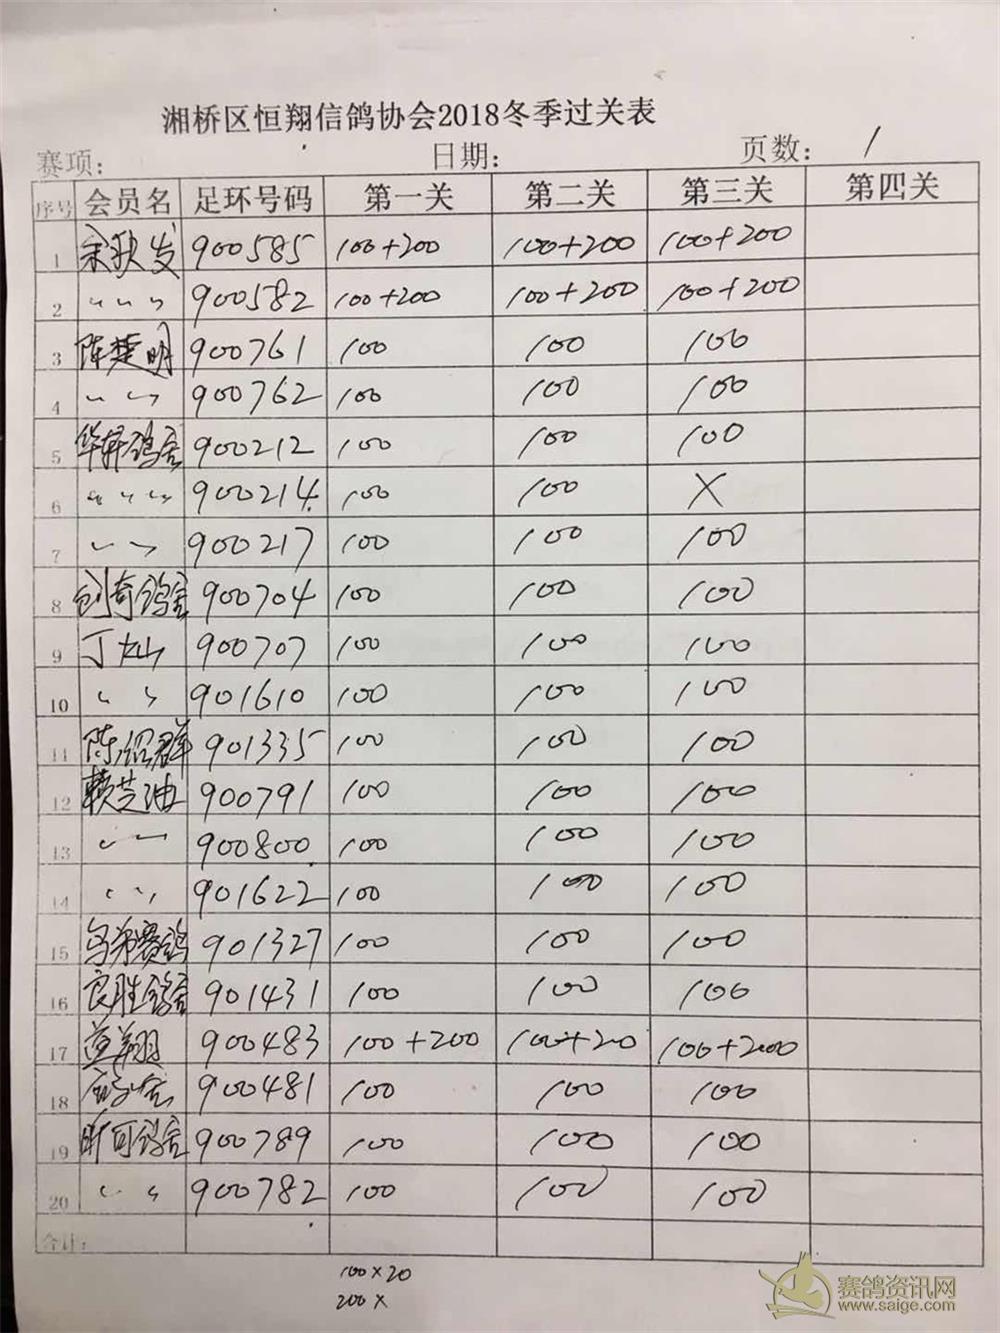 湘桥区恒翔信鸽协会2018冬季过关表
赛项: 日期: 页数: 1
序号 会员名 足环号码 第一关 第二关 第三关 第四关
1 余秋发 900585 100+200 100+200 100+200
2 〃 〃 〃 900582 100+200 100+200 100+200
3 陈楚明 900761 100 100 100
4 〃 〃 900762 100 100 100
5 华轩鸽舍 900212 100 100 100
6 〃 〃 〃 900214 100 100 X
7 〃 〃 900217 100 100 100
8 创奇鸽舍 900704 100 100 100
9 丁灿 900707 100 100 100
10 〃 〃 901610 100 100 100
11 陈绍群 901335 100 100 100
12 赖芝油 900791 100 100 100
13 〃 〃 900800 100 100 100
14 〃 〃 901622 100 100 100
15 赛鸽 901327 100 100 100
16 良胜鸽舍 901431 100 100 100
17 翔 900483 100+200 100+200 100+200
18 900481 100 100 100
19 昕可鸽舍 900789 100 100 100
20 〃 〃 900782 100 100 100
合计:
100×20
200×
赛鸽资讯网
www.saige.com